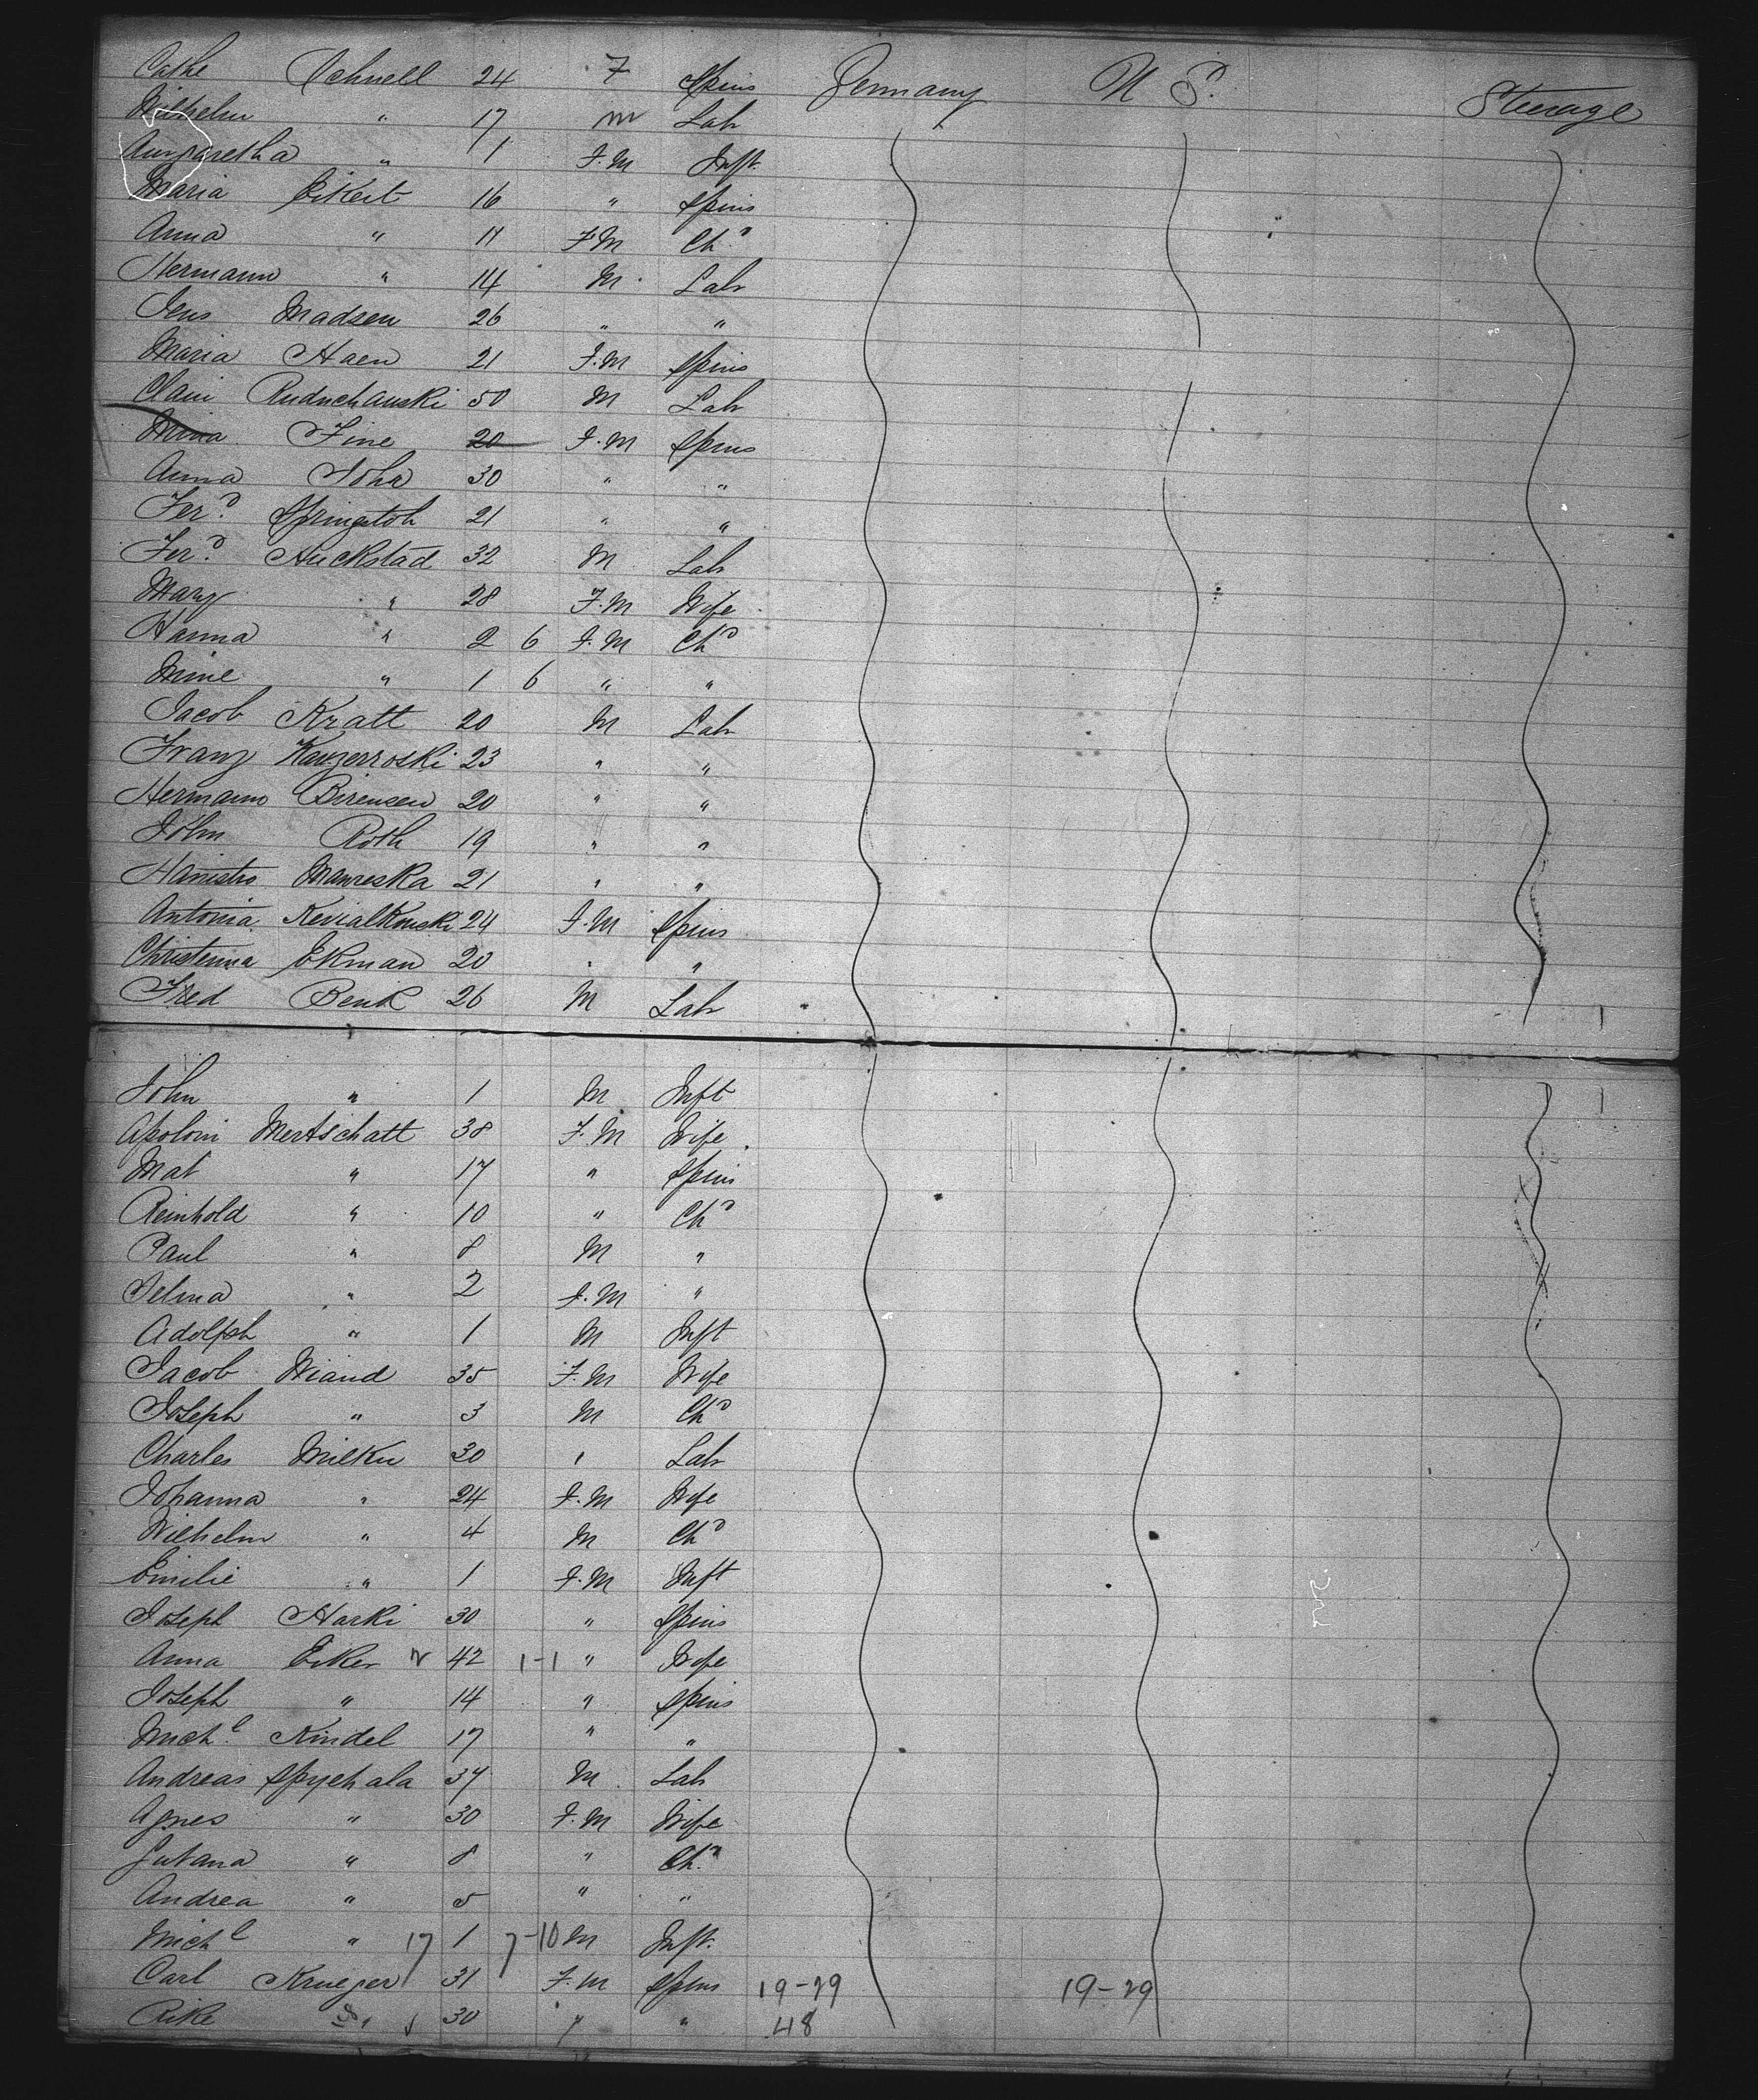 Cathe Schnell 24 F Spins Germany U S. Steerage
Wilhelm " 17 m Lab
Margaretha " 1 F.M Inft.
Maria Eikert 16 " Spins
Anna " 11 F M Chd
Hermann " 14 M. Lab
Jens Madsen 26 " "
Maria Haen 21 F.M Spins
Chaim Rudnchauski 50 M Lab
Mina Fine 20 F.M Spins
Anna Noha 30 " "
Ferd. Springtoh 21 " "
Ferd. Huckstad 32 M Lab
Mary " 28 F.M Wife
Hanna " 2 6 F.M Chd
Mine " 1 6 " "
Jacob Kratt 20 M Lab
Franz Kanzerroski 23 " "
Hermann Birensen 20 " "
John Roth 19 " "
Hanistro Manreska 21 " "
Antonia 24 F.M Spins
Christenna Ekman 20 " "
Fred Benk 26 M Lab
John " 1 M Inft
Apoloni Mertschatt 38 F.M Wife
Mat " 17 " Spins
Reinhold " 10 " Chd
Paul " 8 M "
Selma " 2 F.M "
Adolph " 1 M Inft
Jacob Wiand 35 F.M Wife
Joseph " 3 M Chd
Charles Milku 30 " Lab
Johanna " 24 F.M Wife
Wilhelm " 4 M Chd
Emilie " 1 F.M Inft
Joseph Harki 30 " Spins
Anna Eiker 42 1-1 " Wife
Joseph " 14 " Spins
Michl. Kindel 17 " "
Andreas Spychala 37 M Lab
Agnes " 30 F.M Wife
Jutana " 8 " Chd
Andrea " 5 " "
Michl " 17 1 7-10 M Inft.
Carl Krueger 31 F.M Spins 19-29 19-29
Rike " 30 " " 48